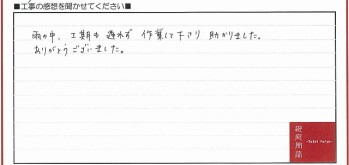 ■工事の感想を聞かせてください■
雨の中、工期も遅れず 作業して下さり 助かりました。
ありがとうございました。